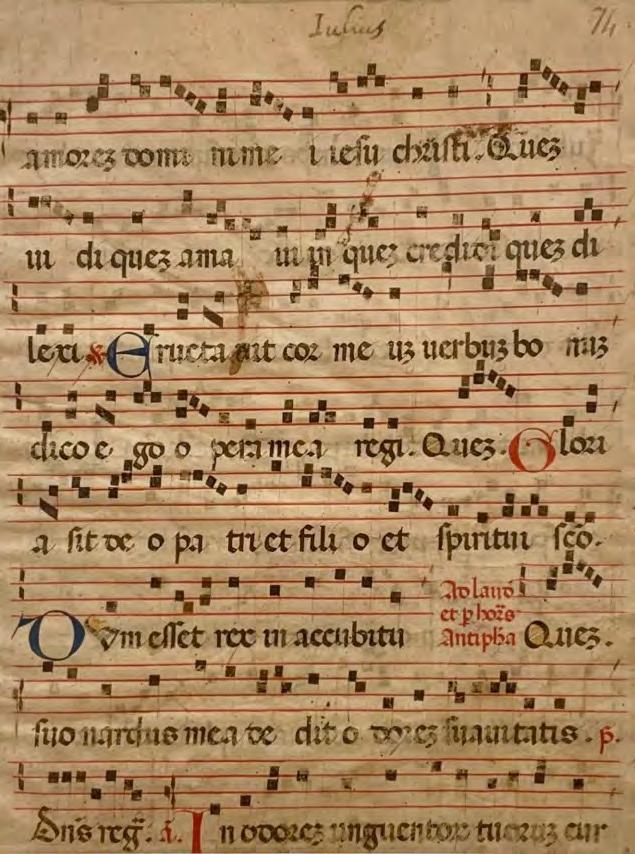 Iulius 74
amorez domi nimme i iesu christi. Quez
ui di quez ama ui in quez credidi quez di
lexi Eructa uit cor me uz uerbuz bo nuz
dico e go o pera mea regi. Quez. Glori
a sit de o pa tri et fili o et spiritui sco.
Ad laud
et p hors
Antipha
Dvm esset rex in accubitu Quez.
suo nardus mea de dit o dorez suauitatis. p.
Dns reg. a. In odorez unguentor tuoruz cur